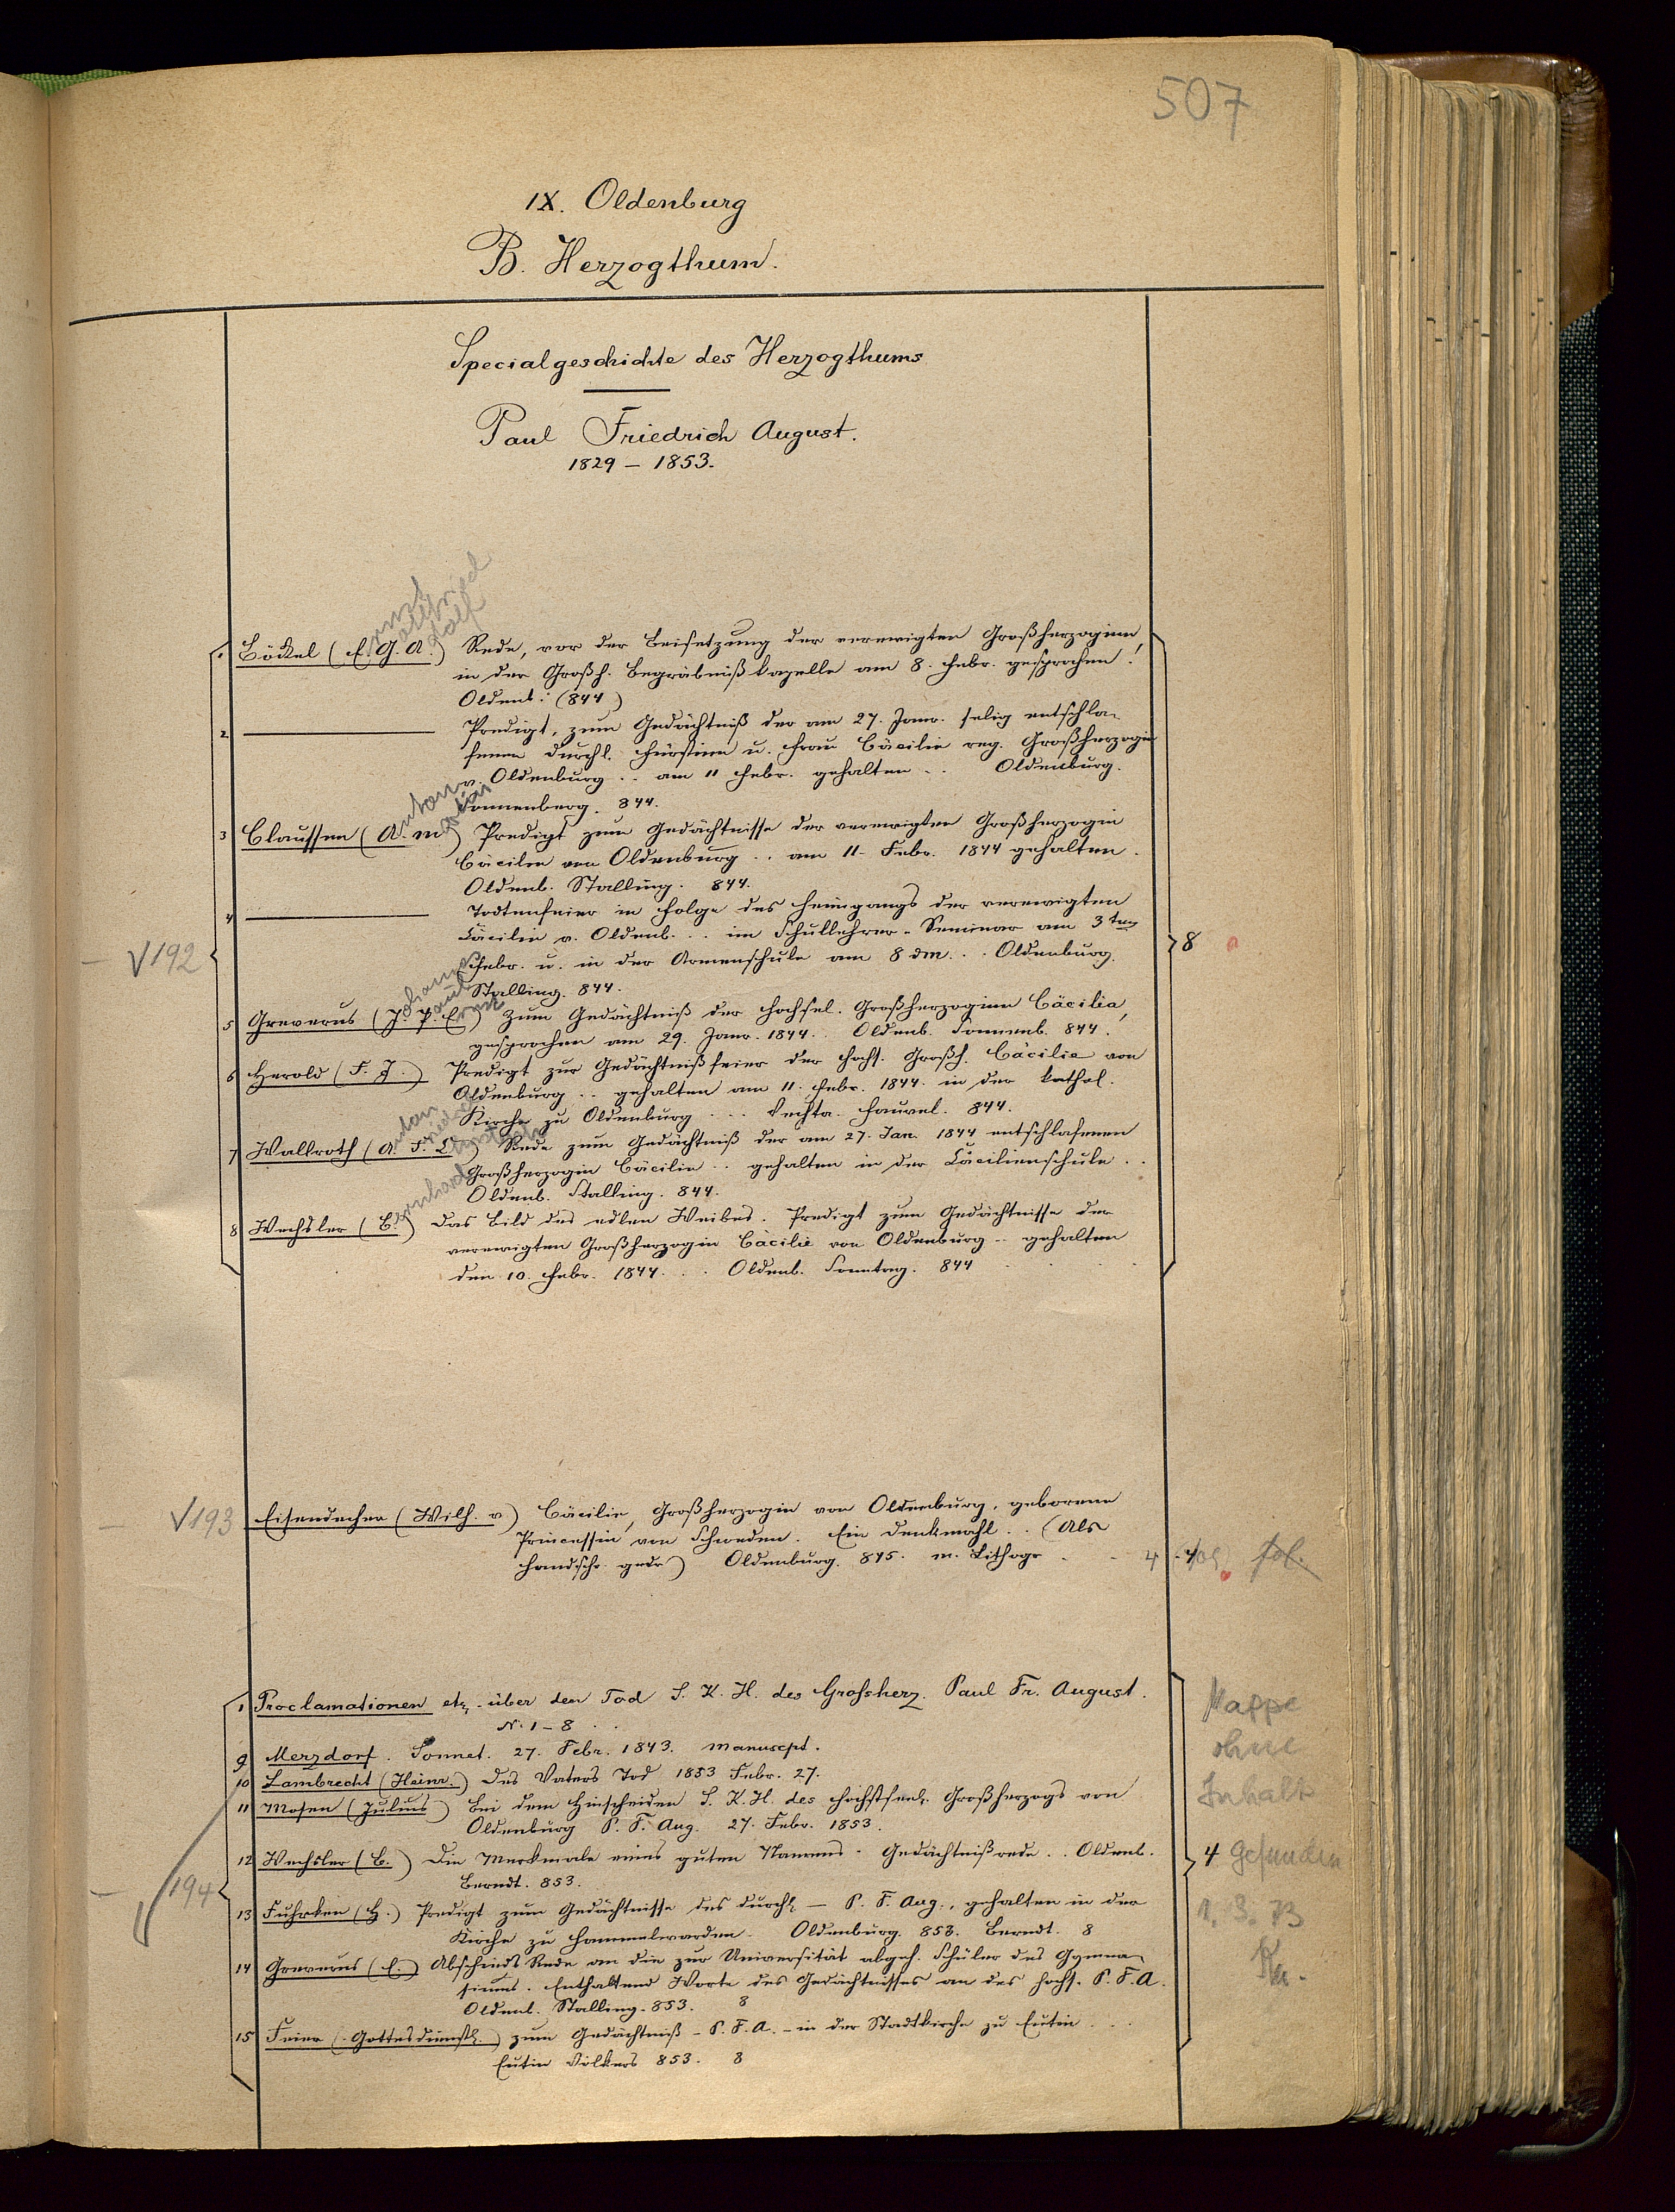 507
IX. Oldenburg
B. Herzogthum.
Specialgeschichte des Herzogthums
Paul Friedrich August.
1829 – 1853.
1 Böckel (E. G. A.) Rede, vor der Beisetzung der verewigten Großherzoginn,
ernst ottfried dolf
in der Großh. Begräbnißkapelle am 8. Febr. gesprochen!
Oldenb: (844)
2 ——— Predigt, zum Gedächtniß der am 27. Janr. selig entschla-
fenen durchl. Fürstinn u. Frau Cäcilie reg. Großherzogin
v. Oldenburg .. am 11 Febr. gehalten .. Oldenburg.
Sonnenberg. 844.
3 Claussen (A. M) Predigt zum Gedächtnisse der verewigten Großherzogin
nton artin
Cäcilie von Oldenburg .. am 11. Febr. 1844 gehalten.
Oldenb. Stalling. 844.
4 ——— Todtenfeier in Folge des Heimgangs der verewigten
Cäcilie v. Oldenb. .. im Schullehrer-Seminar am 3ten
V192
8
Febr. u. in der Armenschule am 8 dM. .. Oldenburg.
Stalling. 844.
5 Greverus (J. P. E) Zum Gedächtniß der hochsel. Großherzoginn Cäcilia,
ohann aul rnst
gesprochen am 29. Janr. 1844. . Oldenb. Sonnenb. 844.
6 Herold (F. J.) Predigt zur Gedächtnißfeier der Hochs. Großh. Cäcilie von
Oldenburg .. gehalten am 11. Febr. 1844. in der kathol.
Kirche zu Oldenburg ... Vechta. Fauvel. 844.
7 Wallroth (A. F. Ch) Rede zum Gedächtniß der am 27. Jan. 1844 entschlafenen
Großherzogin Cäcilie .. gehalten in der Cäcilienschule ..
Oldenb. Stalling. 844.
8 Wechsler (B.) Das Bild des edlen Weibes. Predigt zum Gedächtnisse der
ernhard
verewigten Großherzogin Cäcilie von Oldenburg .. gehalten
den 10. Febr. 1844. .. Oldenb. Sonntag. 844
V193 Eisendecher (Wilh. v) Cäcilie, Großherzogin von Oldenburg, geborene
Princessin von Schweden. Ein Denkmahl .. (Als
Handschr. gedr) Oldenburg. 845. m. Lithogr . . 4 fol.
1 Proclamationen etc. über den Tod S. K. H. des Grossherz. Paul Fr. August.
N. 1–8 . .
Mappe
ohne
9 Merzdorf. Sonnet. 27. Febr. 1843. Manuscpt.
10 Lambrecht (Heinr.) Des Vaters Tod 1853 Febr. 27.
Inhalt
11 Mosen (Julius) Bei dem Hinscheiden S. K. H. des höchstseel. Großherzogs von
Oldenburg P. F. Aug. 27. Febr. 1853.
12 Wechsler (B.) Die Merkmale eines guten Namens. Gedächtnißrede .. Oldenb.
4 gefunden
Berndt. 853.
194
13 Fuhrken (H.) Predigt zum Gedächtnisse des durchl. – P. F. Aug., gehalten in der
1. 3. 73
Kirche zu Hammelwarden. Oldenburg. 853. Berndt. 8
14 Greverus (E.) Abschieds Rede an die zur Universität abgeh. Schüler des Gymna-
siums. Enthaltend Worte des Gedächtnisses an des Hochs. P. F. A.
Oldenb. Stalling. 853. 8
15 Feier (– Gottesdienstl.) zum Gedächtniß – P. F. A. – in der Stadtkirche zu Eutin ...
Eutin Völkers 853. 8